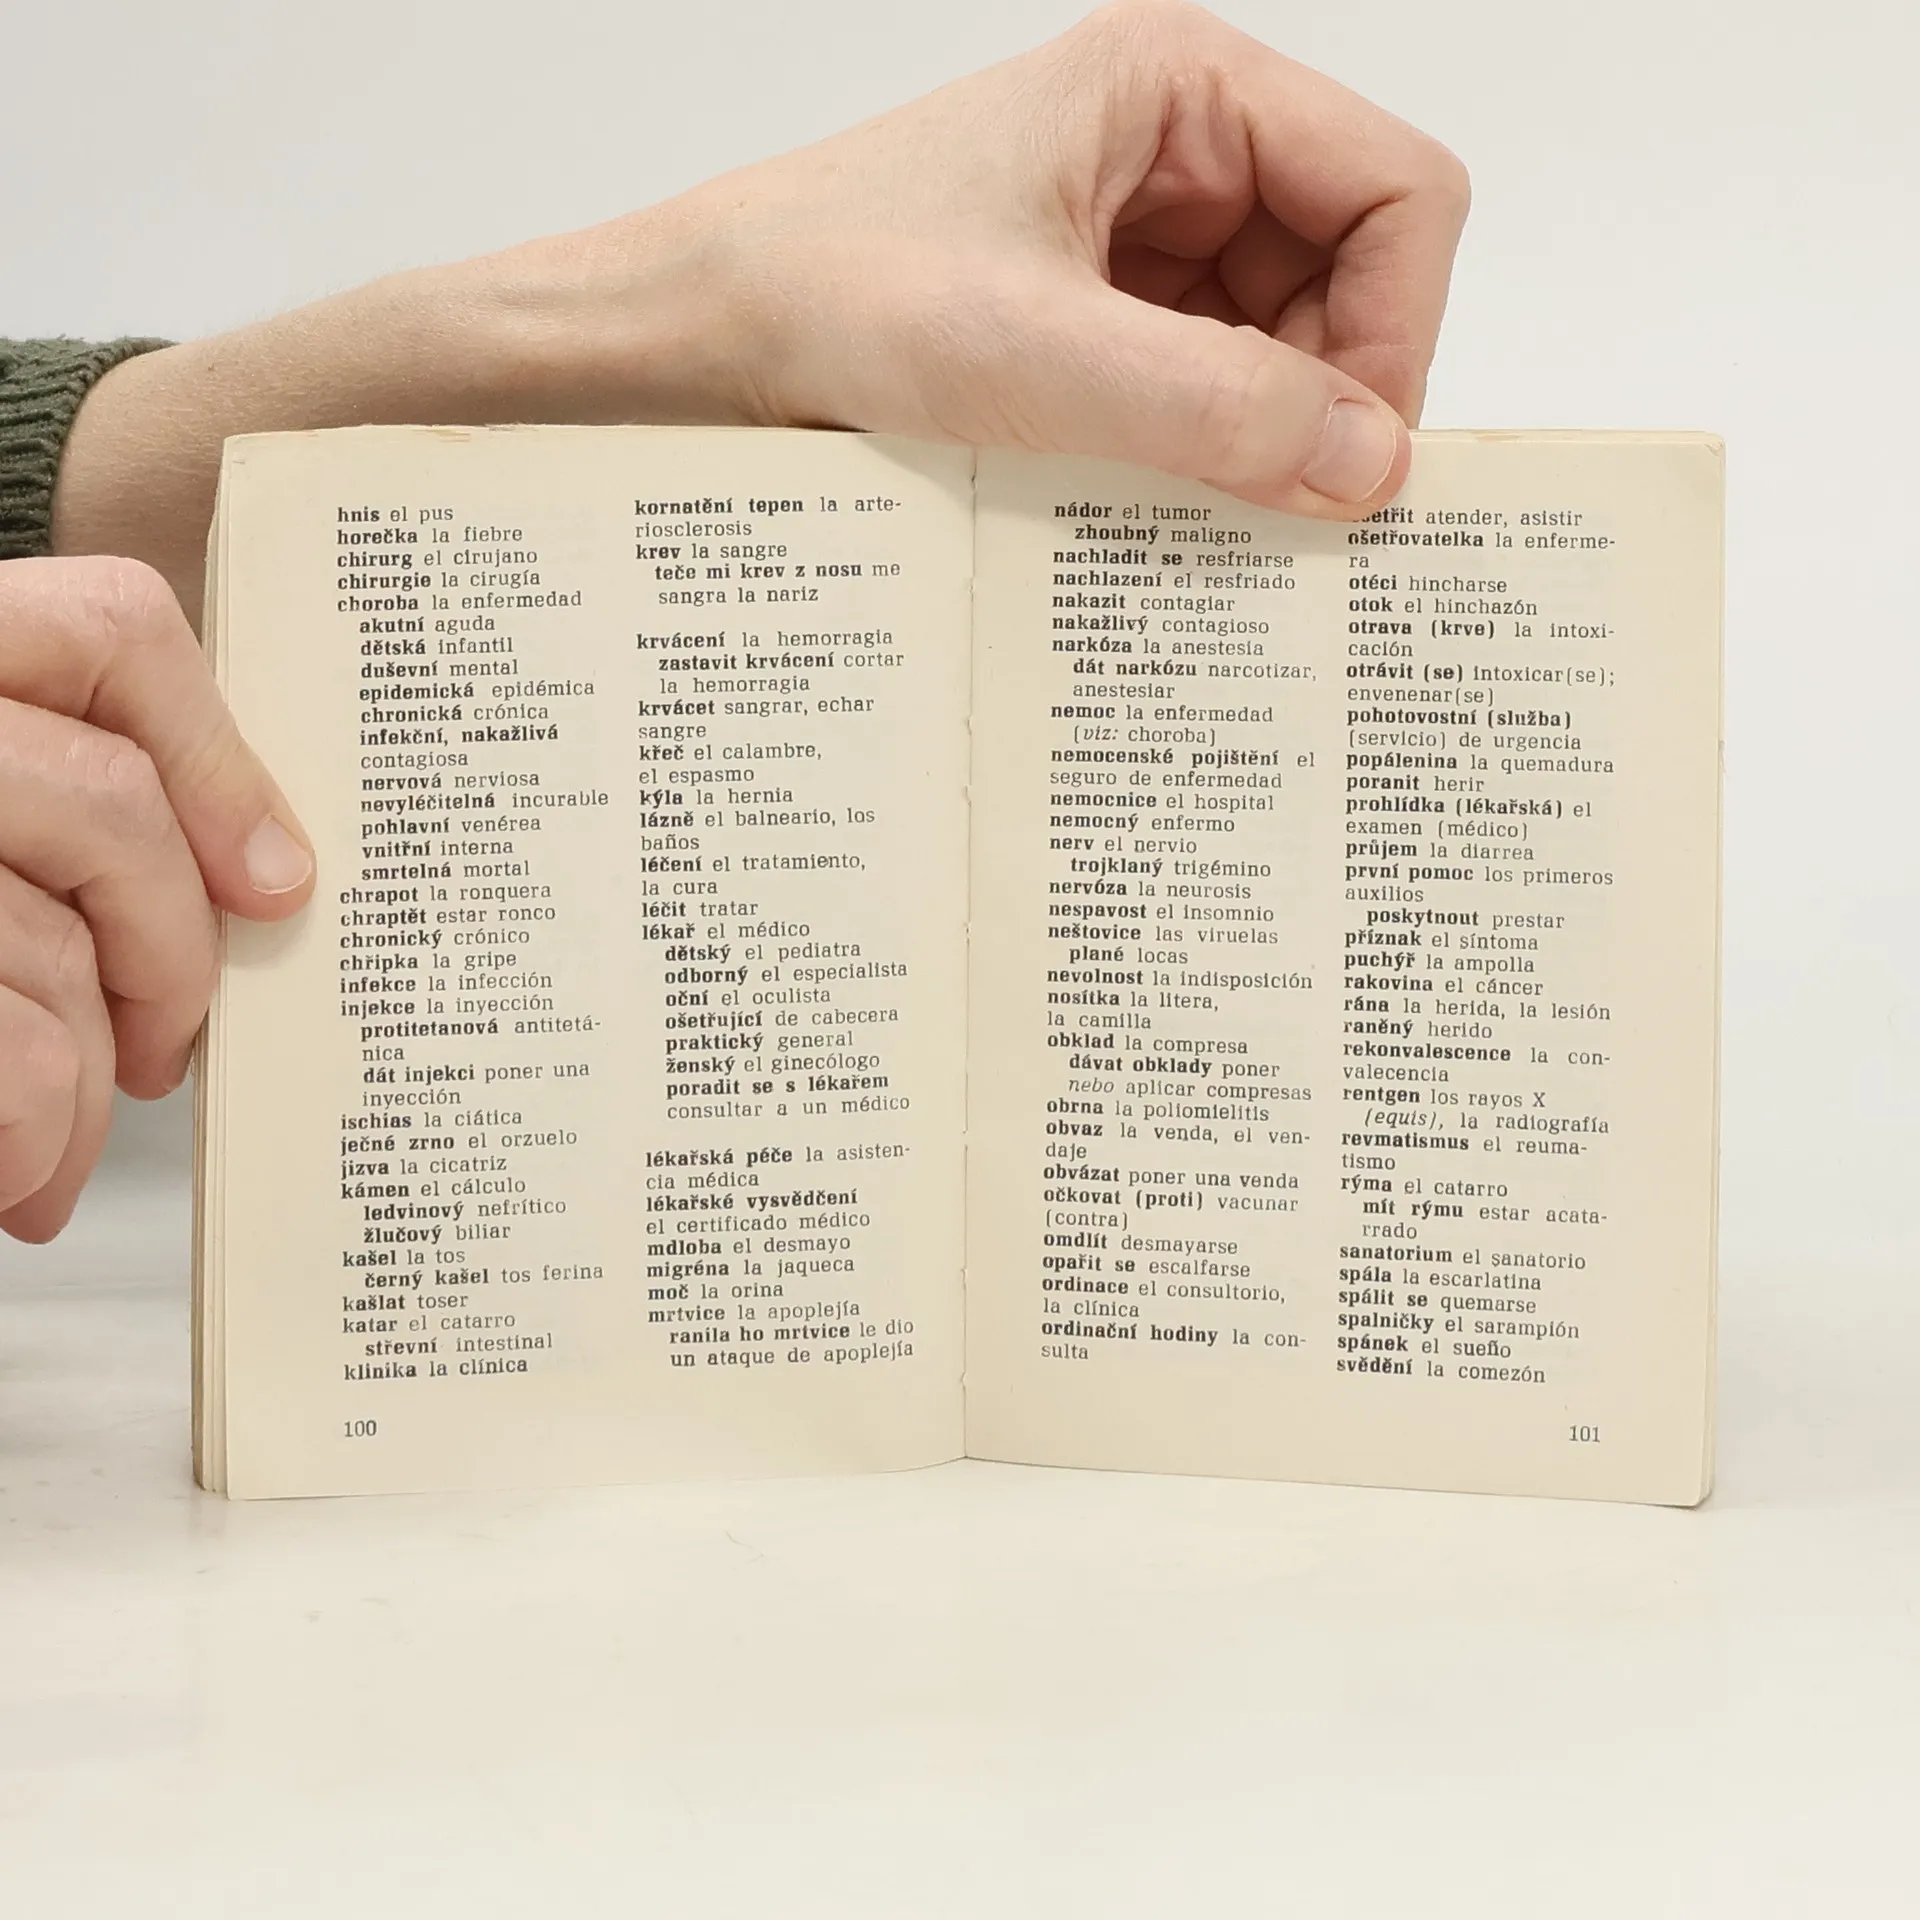 hnis el pus
horečka la fiebre
chirurg el cirujano
chirurgie la cirugía
choroba la enfermedad
akutní aguda
dětská infantil
duševní mental
epidemická epidémica
chronická crónica
infekční, nakažlivá
contagiosa
nervová nerviosa
nevyléčitelná incurable
pohlavní venérea
vnitřní interna
smrtelná mortal
chrapot la ronquera
chraptět estar ronco
chronický crónico
chřipka la gripe
infekce la infección
injekce la inyección
protitetanová antitetá-
nica
dát injekci poner una
inyección
ischias la ciática
ječné zrno el orzuelo
jizva la cicatriz
kámen el cálculo
ledvinový nefrítico
žlučový biliar
kašel la tos
černý kašel tos ferina
kašlat toser
katar el catarro
střevní intestinal
klinika la clínica
kornatění tepen la arte-
riosclerosis
krev la sangre
teče mi krev z nosu me
sangra la nariz
krvácení la hemorragia
zastavit krvácení cortar
la hemorragia
krvácet sangrar, echar
sangre
křeč el calambre,
el espasmo
kýla la hernia
lázně el balneario, los
baños
léčení el tratamiento,
la cura
léčit tratar
lékař el médico
dětský el pediatra
odborný el especialista
oční el oculista
ošetřující de cabecera
praktický general
ženský el ginecólogo
poradit se s lékařem
consultar a un médico
lékařská péče la asisten-
cia médica
lékařské vysvědčení
el certificado médico
mdloba el desmayo
migréna la jaqueca
moč la orina
mrtvice la apoplejía
ranila ho mrtvice le dio
un ataque de apoplejía
100
nádor el tumor
zhoubný maligno
nachladit se resfriarse
nachlazení el resfriado
nakazit contagiar
nakažlivý contagioso
narkóza la anestesia
dát narkózu narcotizar,
anestesiar
nemoc la enfermedad
(viz: choroba)
nemocenské pojištění el
seguro de enfermedad
nemocnice el hospital
nemocný enfermo
nerv el nervio
trojklaný trigémino
nervóza la neurosis
nespavost el insomnio
neštovice las viruelas
plané locas
nevolnost la indisposición
nosítka la litera,
la camilla
obklad la compresa
dávat obklady poner
nebo aplicar compresas
obrna la poliomielitis
obvaz la venda, el ven-
daje
obvázat poner una venda
očkovat (proti) vacunar
(contra)
omdlít desmayarse
opařit se escalfarse
ordinace el consultorio,
la clínica
ordinační hodiny la con-
sulta
atender, asistir
ošetřovatelka la enferme-
ra
otéci hincharse
otok el hinchazón
otrava (krve) la intoxi-
cación
otrávit (se) intoxicar(se);
envenenar(se)
pohotovostní (služba)
(servicio) de urgencia
popálenina la quemadura
poranit herir
prohlídka (lékařská) el
examen (médico)
průjem la diarrea
první pomoc los primeros
auxilios
poskytnout prestar
příznak el síntoma
puchýř la ampolla
rakovina el cáncer
rána la herida, la lesión
raněný herido
rekonvalescence la con-
valecencia
rentgen los rayos X
(equis), la radiografía
revmatismus el reuma-
tismo
rýma el catarro
mít rýmu estar acata-
rrado
sanatorium el sanatorio
spála la escarlatina
spálit se quemarse
spalničky el sarampión
spánek el sueño
svědění la comezón
101